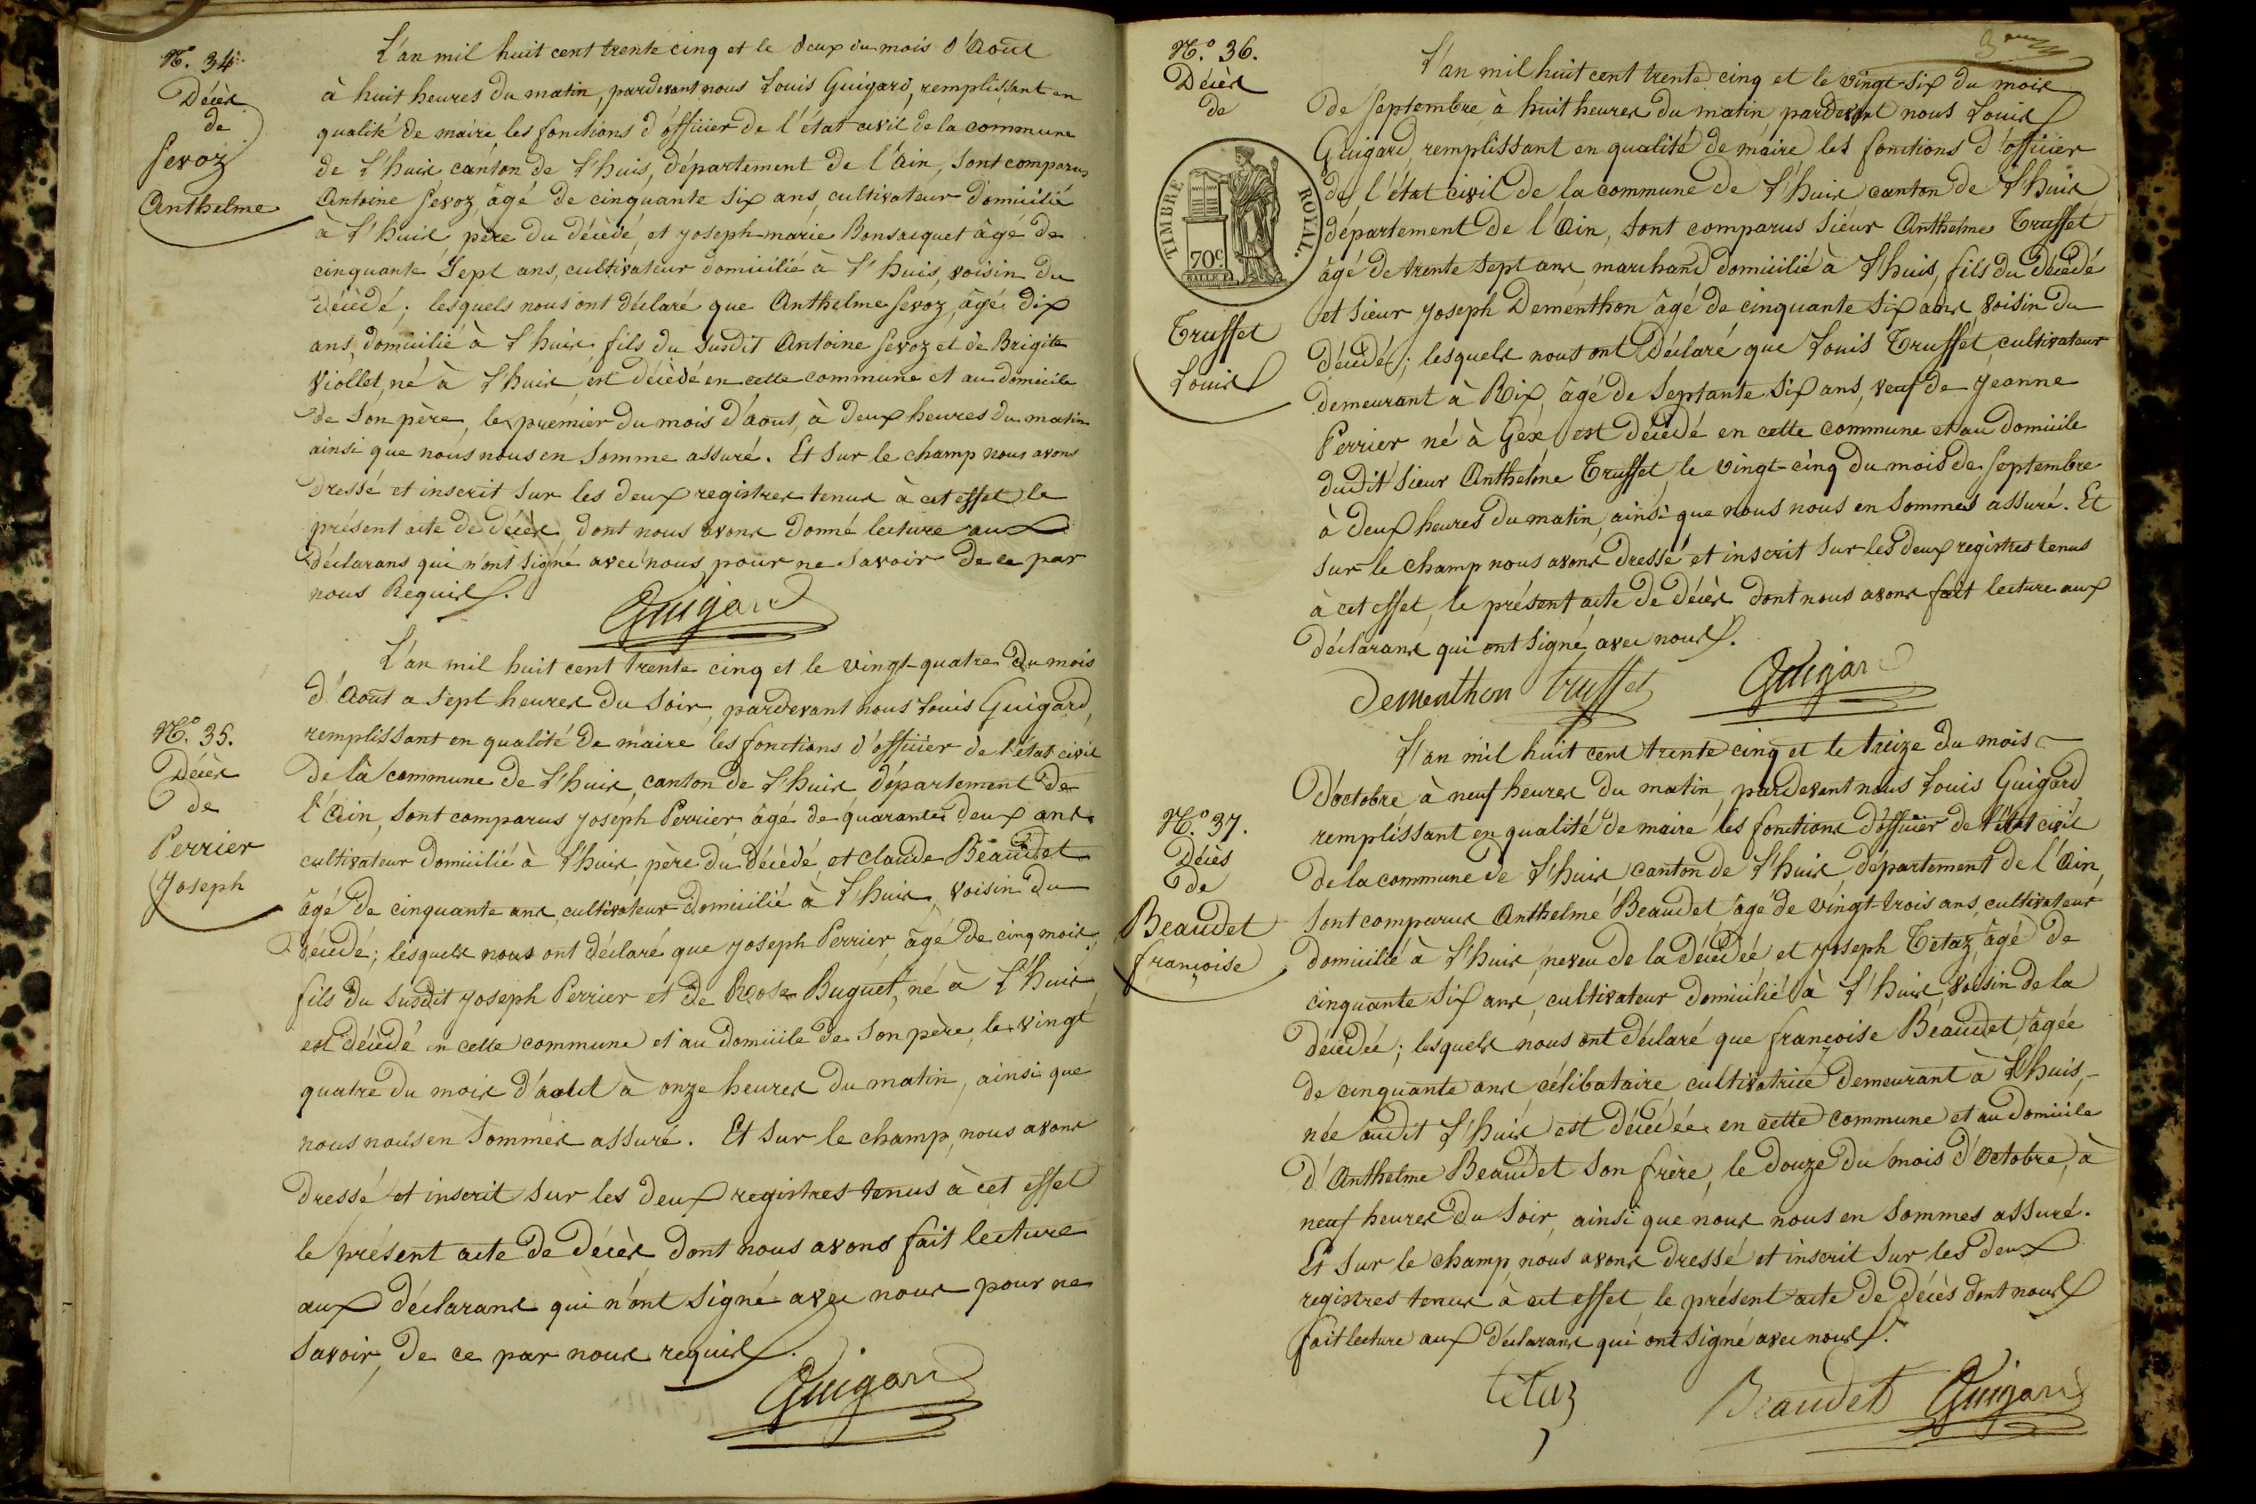 N.° 34.
Décès
de
Sevoz
Anthelme
L'an mil huit cent trente cinq et le deux du mois d'Aout
à huit heures du matin, pardevant nous Louis Guigard, remplissant en
qualité de maire les fonctions d'officier de l'état civil de la commune
de L'huis canton de L'huis, département de l'Ain, sont comparus
Antoine Sevoz âgé de cinquante six ans, cultivateur domicilié
à L'huis père du décédé, et joseph-marie Bonsacquet âgé de
cinquante sept ans, cultivateur domicilié à L'huis, voisin du
décédé; lesquels nous ont déclaré que Anthelme Sevoz, âgé dix
ans, domicilié à L'huis fils du susdit Antoine Sevoz et de Brigitte
Viollet, né à L'huis, est décédé en cette commune et au domicile
de son père, le premier du mois d'aout, à deux heures du matin
ainsi que nous nous en somme assuré. Et sur le champ nous avons
dressé et inscrit sur les deux registres tenus à cet effet le
présent acte de décès, dont nous avons donné lecture aux
déclarans qui n'ont signé avec nous pour ne savoir de ce par
nous Requis.
Guigard
N.° 35.
Décès
de
Perrier
Joseph
L'an mil huit cent trente cinq et le vingt-quatre du mois
d'Aout a sept heures du soir, pardevant nous Louis Guigard,
remplissant en qualité de maire les fonctions d'officier de l'état civil
de la commune de L'huis, canton de L'huis, département de
l'Ain, sont comparus joseph Perrier âgé de quarante deux ans
cultivateur domicilié à L'huis, père du décédé, et claude Beaudet
âgé de cinquante ans, cultivateur domicilié à L'huis, voisin du
décédé; lesquels nous ont déclaré que joseph Perrier, âgé de cinq mois,
fils du susdit joseph Perrier et de Rose Buguet, né à L'huis
est décédé en cette commune et au domicile de son père, le vingt
quatre du mois d'aout à onze heures du matin, ainsi que
nous nous en sommes assuré. Et sur le champ, nous avons
dressé et inscrit sur les deux registres tenus à cet effet
le présent acte de décès dont nous avons fait lecture
aux déclarans qui n'ont signé avec nous pour ne
savoir, de ce par nous requis.
Guigard
N.° 36.
Décès
de
TIMBRE ROYAL.
70c.
Truffet
Louis
L'an mil huit cent trente cinq et le vingt-six du mois
de septembre à huit heures du matin pardevant nous Louis
Guigard, remplissant en qualité de maire les fonctions d'officier
de l'état civil de la commune de L'huis canton de L'huis
département de l'Ain, sont comparus sieur Anthelme Truffet
âgé de trente sept ans, marchand domicilié à L'huis, fils du décédé
et sieur joseph Dementhon âgé de cinquante six ans, voisin du
décédé; lesquels nous ont déclaré que Louis Truffet, cultivateur
demeurant à Rix, âgé de septante six ans, veuf de Jeanne
Perrier né à Gex est décédé en cette commune et au domicile
dudit sieur Anthelme Truffet, le vingt-cinq du mois de septembre
à deux heures du matin, ainsi que nous nous en sommes assuré. Et
sur le champ nous avons dressé et inscrit sur les deux registres tenus
à cet effet, le présent acte de décès dont nous avons fait lecture aux
déclarans qui ont signé avec nous.
Dementhon truffet Guigard
N.° 37.
Décès
de
Beaudet
françoise
L'an mil huit cent trente cinq et le treize du mois
d'octobre à neuf heures du matin, pardevant nous Louis Guigard
remplissant en qualité de maire les fonctions d'officier de l'état civil
de la commune de L'huis canton de L'huis département de l'Ain,
sont comparus Anthelme Beaudet âgé de vingt-trois ans, cultivateur
domicilié à L'huis, neveu de la décédée et joseph Tetaz, âgé de
cinquante six ans, cultivateur domicilié à L'huis, voisin de la
décédée; lesquels nous ont déclaré que françoise Beaudet, âgée
de cinquante ans, célibataire cultivatrice demeurant à L'huis,
née audit L'huis est décédée en cette commune et au domicile
d'Anthelme Beaudet son frère, le douze du mois d'octobre, à
neuf heures du soir, ainsi que nous nous en sommes assuré.
Et sur le champ, nous avons dressé et inscrit sur les deux
registres tenus à cet effet le présent acte de décès dont nous
fait lecture aux déclarans qui ont signé avec nous.
tétaz Beaudet Guigard